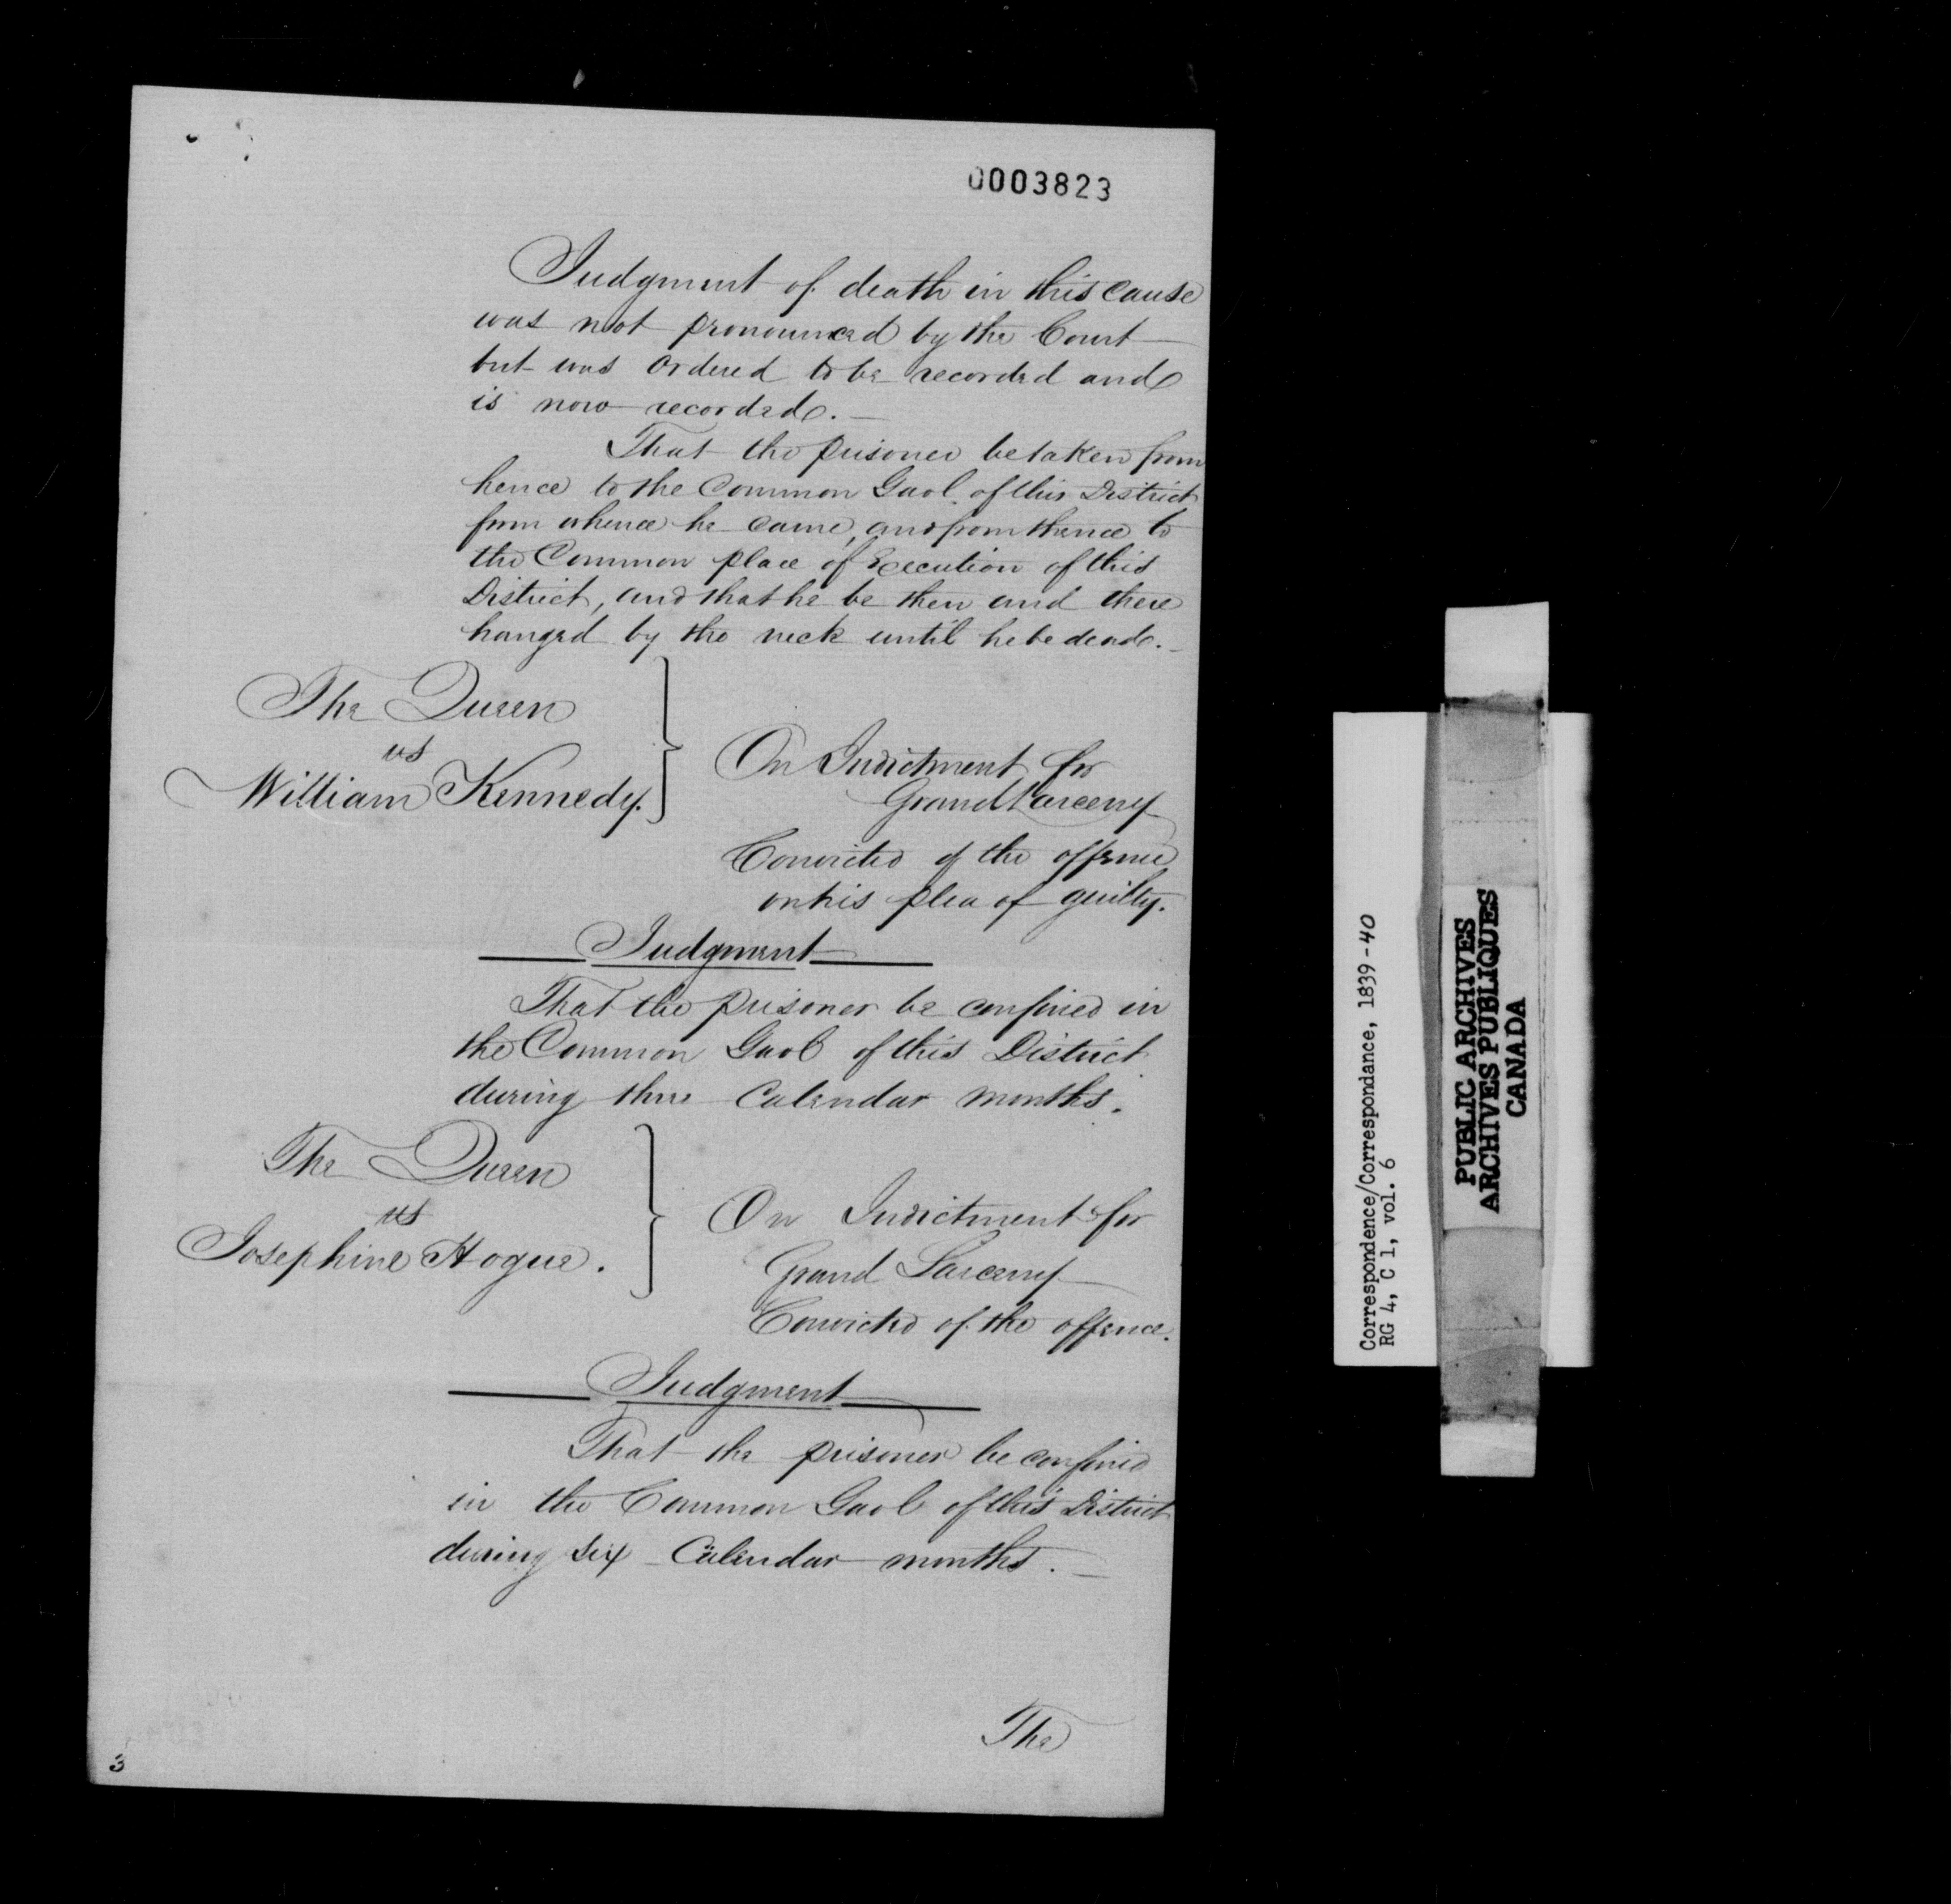 0003823
Judgment of death in this cause
was not pronounced by the Court
but was ordered to be recorded and
is now recorded.
That the prisoner be taken from
hence to the Common Gaol of this District
from whence he came, and from thence to
the Common place of Execution of this
District, and that he be then and there
hanged by the neck until he be dead.
The Queen
vs
William Kennedy.
On Indictment for
Grand Larceny
Convicted of the offence
on his plea of guilty.
Judgment
That the prisoner be confined in
the Common Gaol of this District
during three Calendar months.
The Queen
vs
Josephine Hogue.
On Indictment for
Grand Larceny
Convicted of the offence.
Judgment
That the prisoner be confined
in the Common Gaol of this District
during six Calendar months.
The
3
Correspondence/Correspondance, 1839-40
RG 4, C 1, vol. 6
PUBLIC ARCHIVES
ARCHIVES PUBLIQUES
CANADA